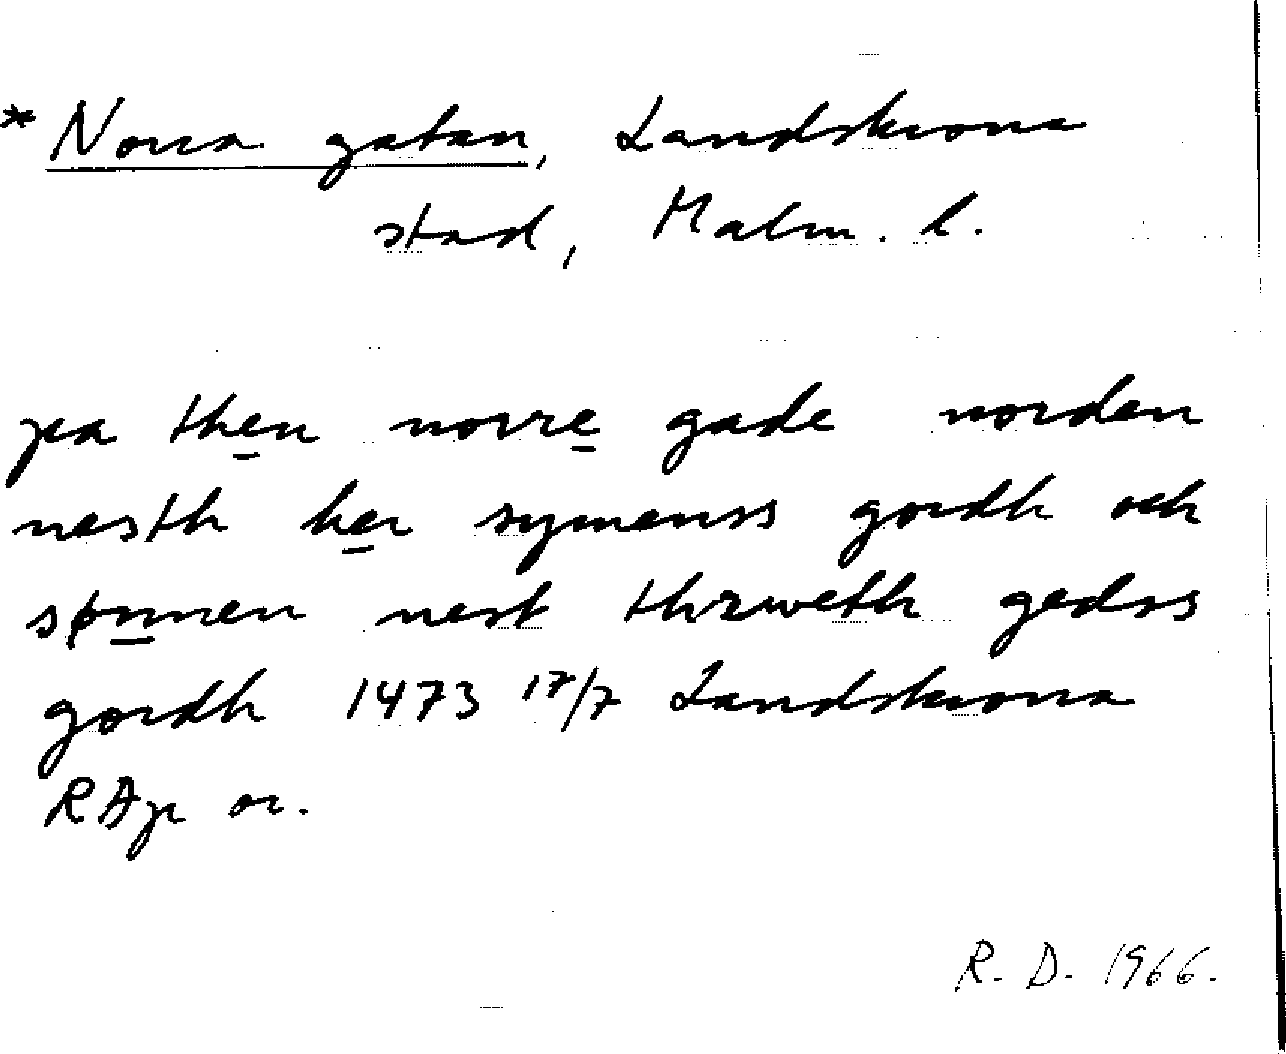 * Norra gatan, Landskrona
stad, Malm. l.
pa then norre gade norden
nesth her symenss gordh och
synnen nest thrweth gedss
gordh 1473 17/7 Landskrona
RAp or.
R. D. 1966.